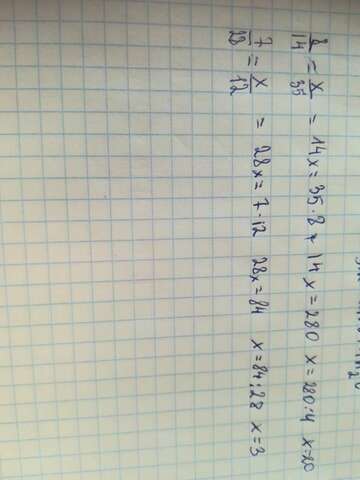 8/14 = x/35 = 14x = 35·8 14x = 280 x = 280:4 x=20
7/28 = x/12 = 28x = 7·12 28x = 84 x = 84:28 x = 3